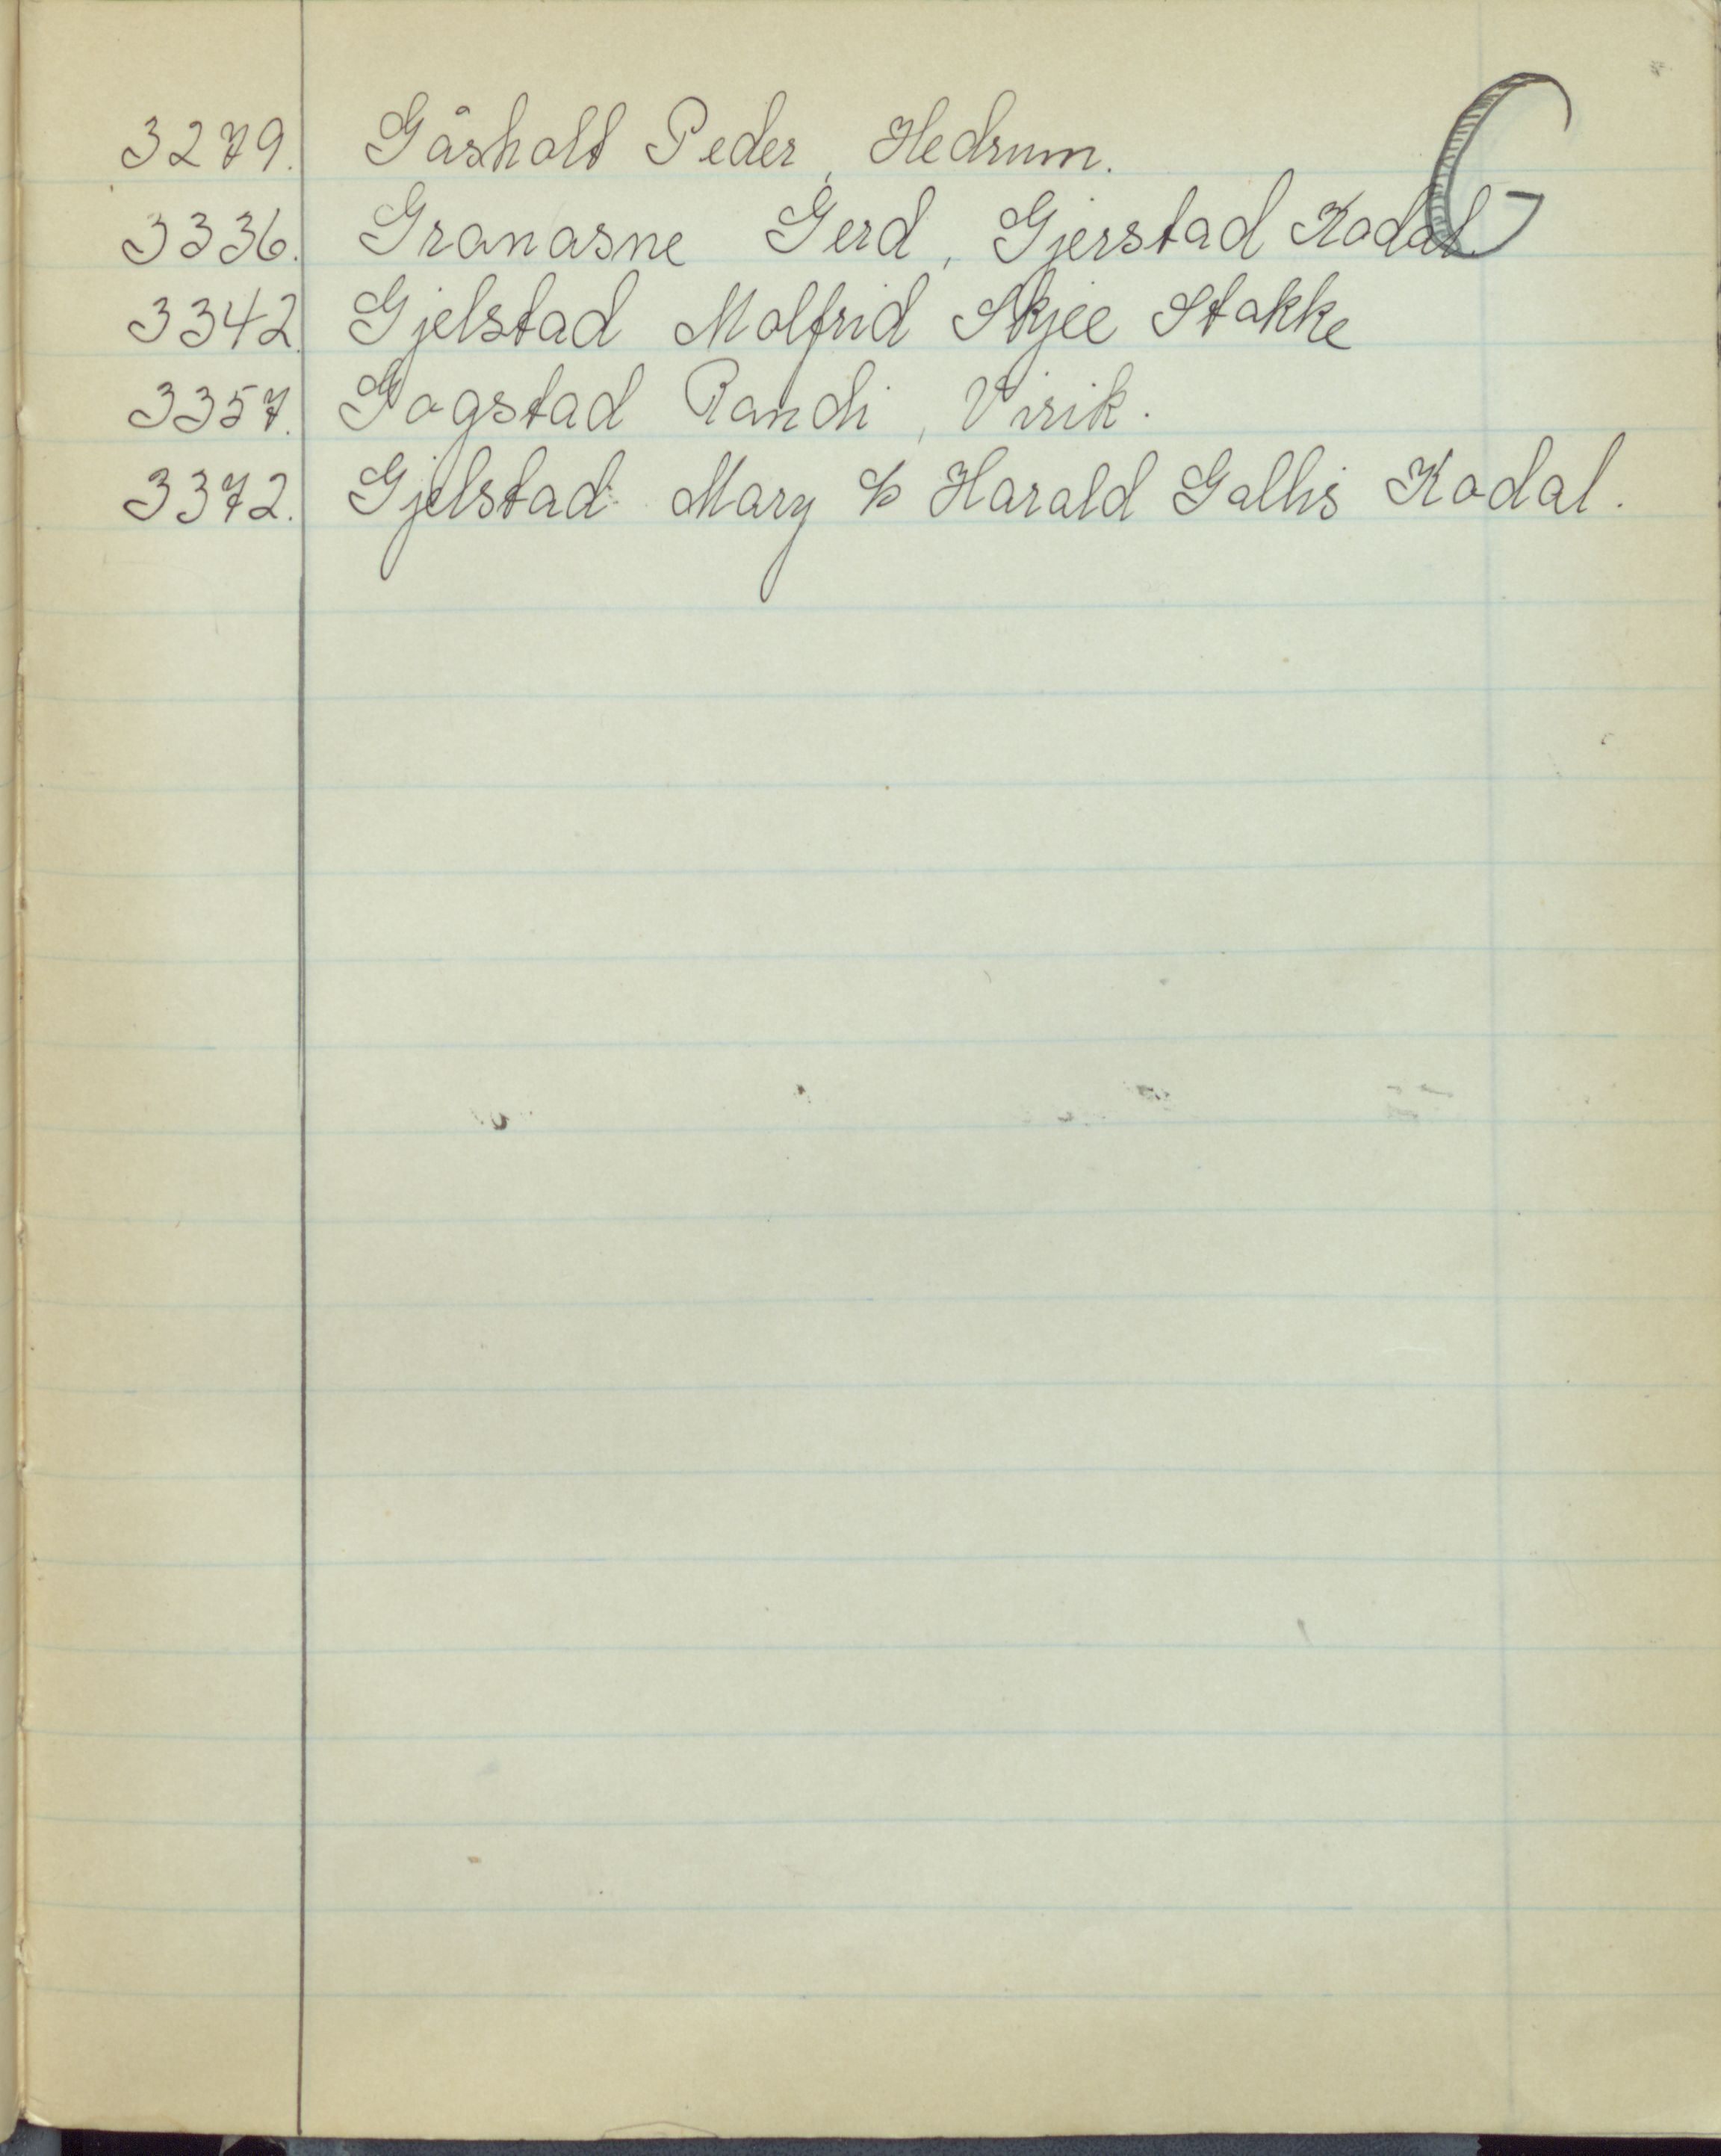 G
3279. Gåsholt Peder, Hedrum.
3336. Granasne Gerd, Gjerstad Kodal.
3342. Gjelstad Molfrid Skjee Stokke
3357. Gogstad Randi, Virik.
3372. Gjelstad Mary c/o Harald Gallis Kodal.